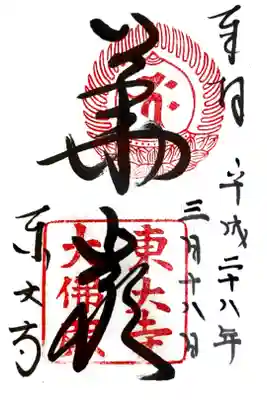 奉拝
平成二十八年
三月十八日
華嚴
東大寺
大佛殿
東大寺